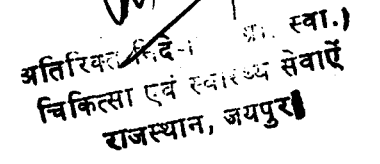 अतिरिक्त निदे- प्रा. स्वा.)
चिकित्सा एवं स्वास्थ्य सेवाऐं
राजस्थान, जयपुर